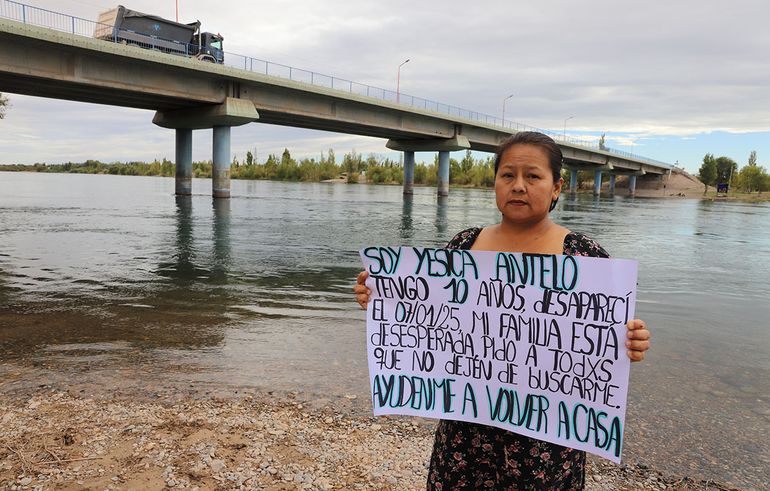 SOY YESICA ANTELO
TENGO 10 AÑOS, DESAPARECÍ
EL 07/01/25. MI FAMILIA ESTÁ
DESESPERADA PIDO A TODXS
QUE NO DEJEN DE BUSCARME.
AYUDENME A VOLVER A CASA